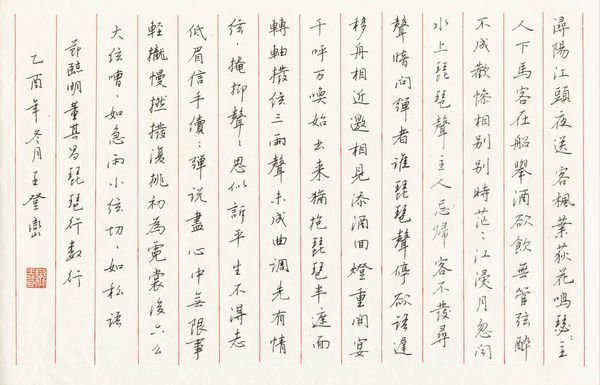 潯陽江頭夜送客楓葉荻花鳴瑟〻主
人下馬客在船舉酒欲飲無管弦醉
不成歡慘相別別時茫〻江浸月忽聞
水上琵琶聲主人忘歸客不發尋
聲暗問彈者誰琵琶聲停欲語遲
移舟相近邀相見添酒回燈重開宴
千呼万喚始出来猶抱琵琶半遮面
轉軸撥弦三兩聲未成曲調先有情
弦〻掩抑聲〻思似訴平生不得志
低眉信手續〻彈說盡心中無限事
輕攏慢撚撥復挑初為霓裳後六么
大弦嘈〻如急雨小弦切〻如私語
節臨明董其昌琵琶行數行
乙酉年冬月王登